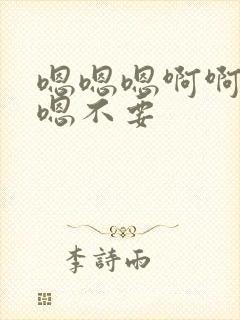 嗯嗯嗯啊啊
嗯不要
李詩雨